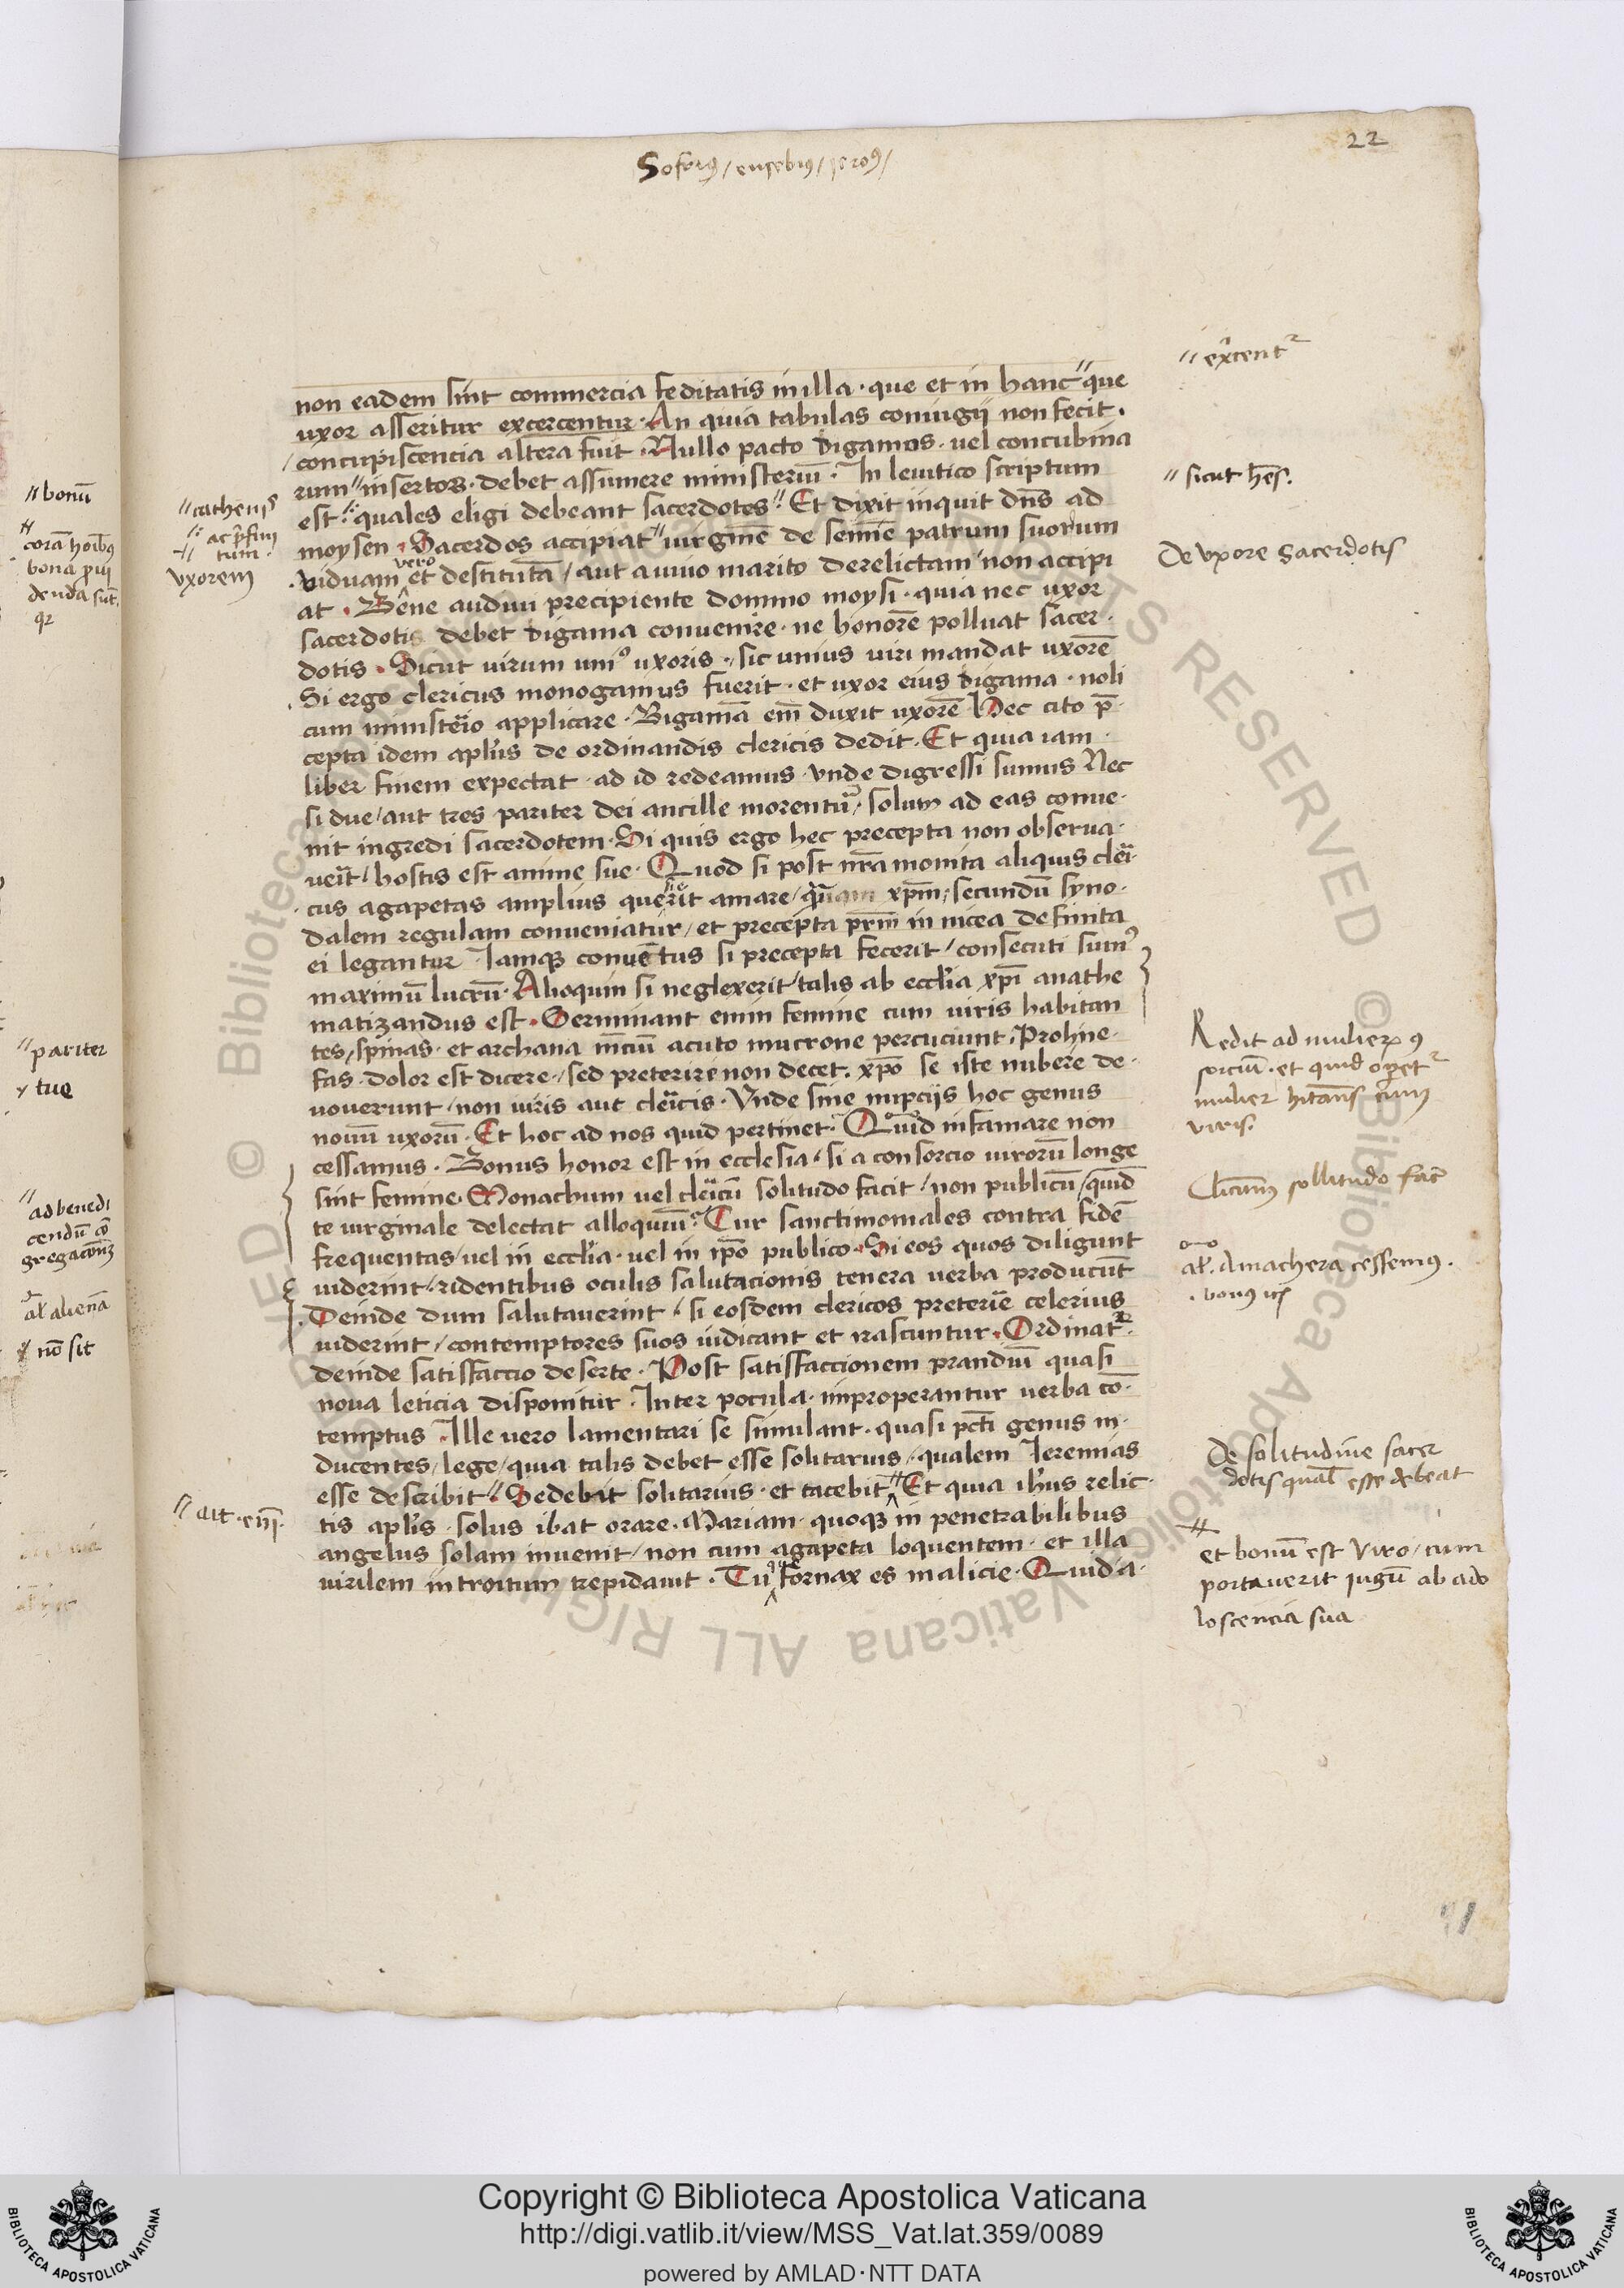 22
Sofon9 / eusebius / ieroı9 /
non eadem sint commercia feditatis in illa · que et in hanc que
uxor asseritur excercentur · An quia tabulas coniugij non fecit ·
concupiscencia altera fuit · Nullo pacto bigamos · vel concubina
rum insertos · debet assumere ministeriū · In levitico scriptum
est · quales eligi debeant sacerdotes · Et dixit inquit dn̄s ad
moysen · Sacerdos accipiat virginē de semīe patrum suorum
viduam vero et destitutā / aut a viuo marito derelictam non accipi
at · Bene audiui precipiente domino moysi · quia nec vxor
sacerdotis debet bigama conuenire · ne honorē polluat sacer
dotis · Sicut uirum uni9 uxoris · sic unius viri mandat uxorē
Si ergo clericus monogamus fuerit · et uxor eius bigama · noli
eum ministerio applicare · Bigamā em̄ duxit uxorē Hec cito p̄
cepta idem apl̄us de ordinandis clericis dedit · Et quia iam
liber finem expectat · ad id redeamus · vnde digressi sumus Nec
si due / aut tres pariter dei ancille morentur / solum ad eas conue
nit ingredi sacerdotem · Si quis ergo hec precepta non obserua
uerit / hostis est anime sue · Quod si post nr̄a monita aliquis cleri
cus agapetas amplius querit amare / quam xp̄m / secundū syno
dalem regulam conueniatur / et precepta pr̄m in nicea definita
ei legantur Iamq conuētus si precepta fecerit / consecuti sum9
maximū lucrū · Alioquin si neglexerit / talis ab eccl̄ia xp̄i anathe
matizandus est · Germinant enim femine cum viris habitan
tes / spinas · et archana mēciū acuto mucrone percuciunt · Proh ne
fas · dolor est dicere / sed preterire non decet · xp̄o se iste nubere de
uouerunt / non viris aut clericis · Vnde sine nupcijs hoc genus
nouū uxorū · Et hoc ad nos quid pertinet · Quid infamare non
cessamus · Bonus honor est in ecclesia / si a consorcio virorū longe
sint femine · Monachum vel clericū solitudo facit / non publicū / quid
te virginale delectat alloquiū · Cur sanctimoniales contra fidē
frequentas / vel in eccl̄ia · vel in ip̄o publico · Si eos quos diligunt
viderint / ridentibus oculis salutacionis tenera verba producūt
Deinde dum salutauerint / si eosdem clericos preterire celerius
viderint / contemptores suos iudicant et irascuntur · Ordinatr
deinde satisfaccio deserte · Post satisfaccionem prandiū quasi
noua leticia disponitur · Inter pocula · improperantur verba cō
temptus Ille vero lamentari se simulant · quasi pct̄i genus in
ducentes / lege / quia talis debet esse solitarius / qualem Ieremias
esse describit · Sedebit solitarius · et tacebit Et quia ih̄us relic
tis apl̄is · solus ibat orare · Mariam quoq in penetrabilibus
angelus solam inuenit / non cum agapeta loquentem · et illa
virilem introitum trepidauit · Tu fornax es malicie · Quid a
excentr
sicut hes.
cathenis
ac p̄fini
tum ·
vxorem
De vxore sacerdotis
Redit ad mulierem 9
sorciū · et quid oparetr
mulier hitans cum
viris.
Clericum sollitudo facit
al̄. Amachera cessemus .
bonus
ait · eni.
De solitudine sacer
dotis qual̄ esse debeat
et bonū est viro / cum
portauerit jugū ab ado
loscencia sua
bonū
corā hoībus
bona pui
denda sūt.
qr
pariter
y tue
ad benedi
cendū cō
gregacionē
al̄ alienā
nō sit
© Biblioteca Apostolica Vaticana ALL RIGHTS RESERVED
Copyright © Biblioteca Apostolica Vaticana
http://digi.vatlib.it/view/MSS_Vat.lat.359/0089
powered by AMLAD·NTT DATA
BIBLIOTECA APOSTOLICA VATICANA
BIBLIOTECA APOSTOLICA VATICANA